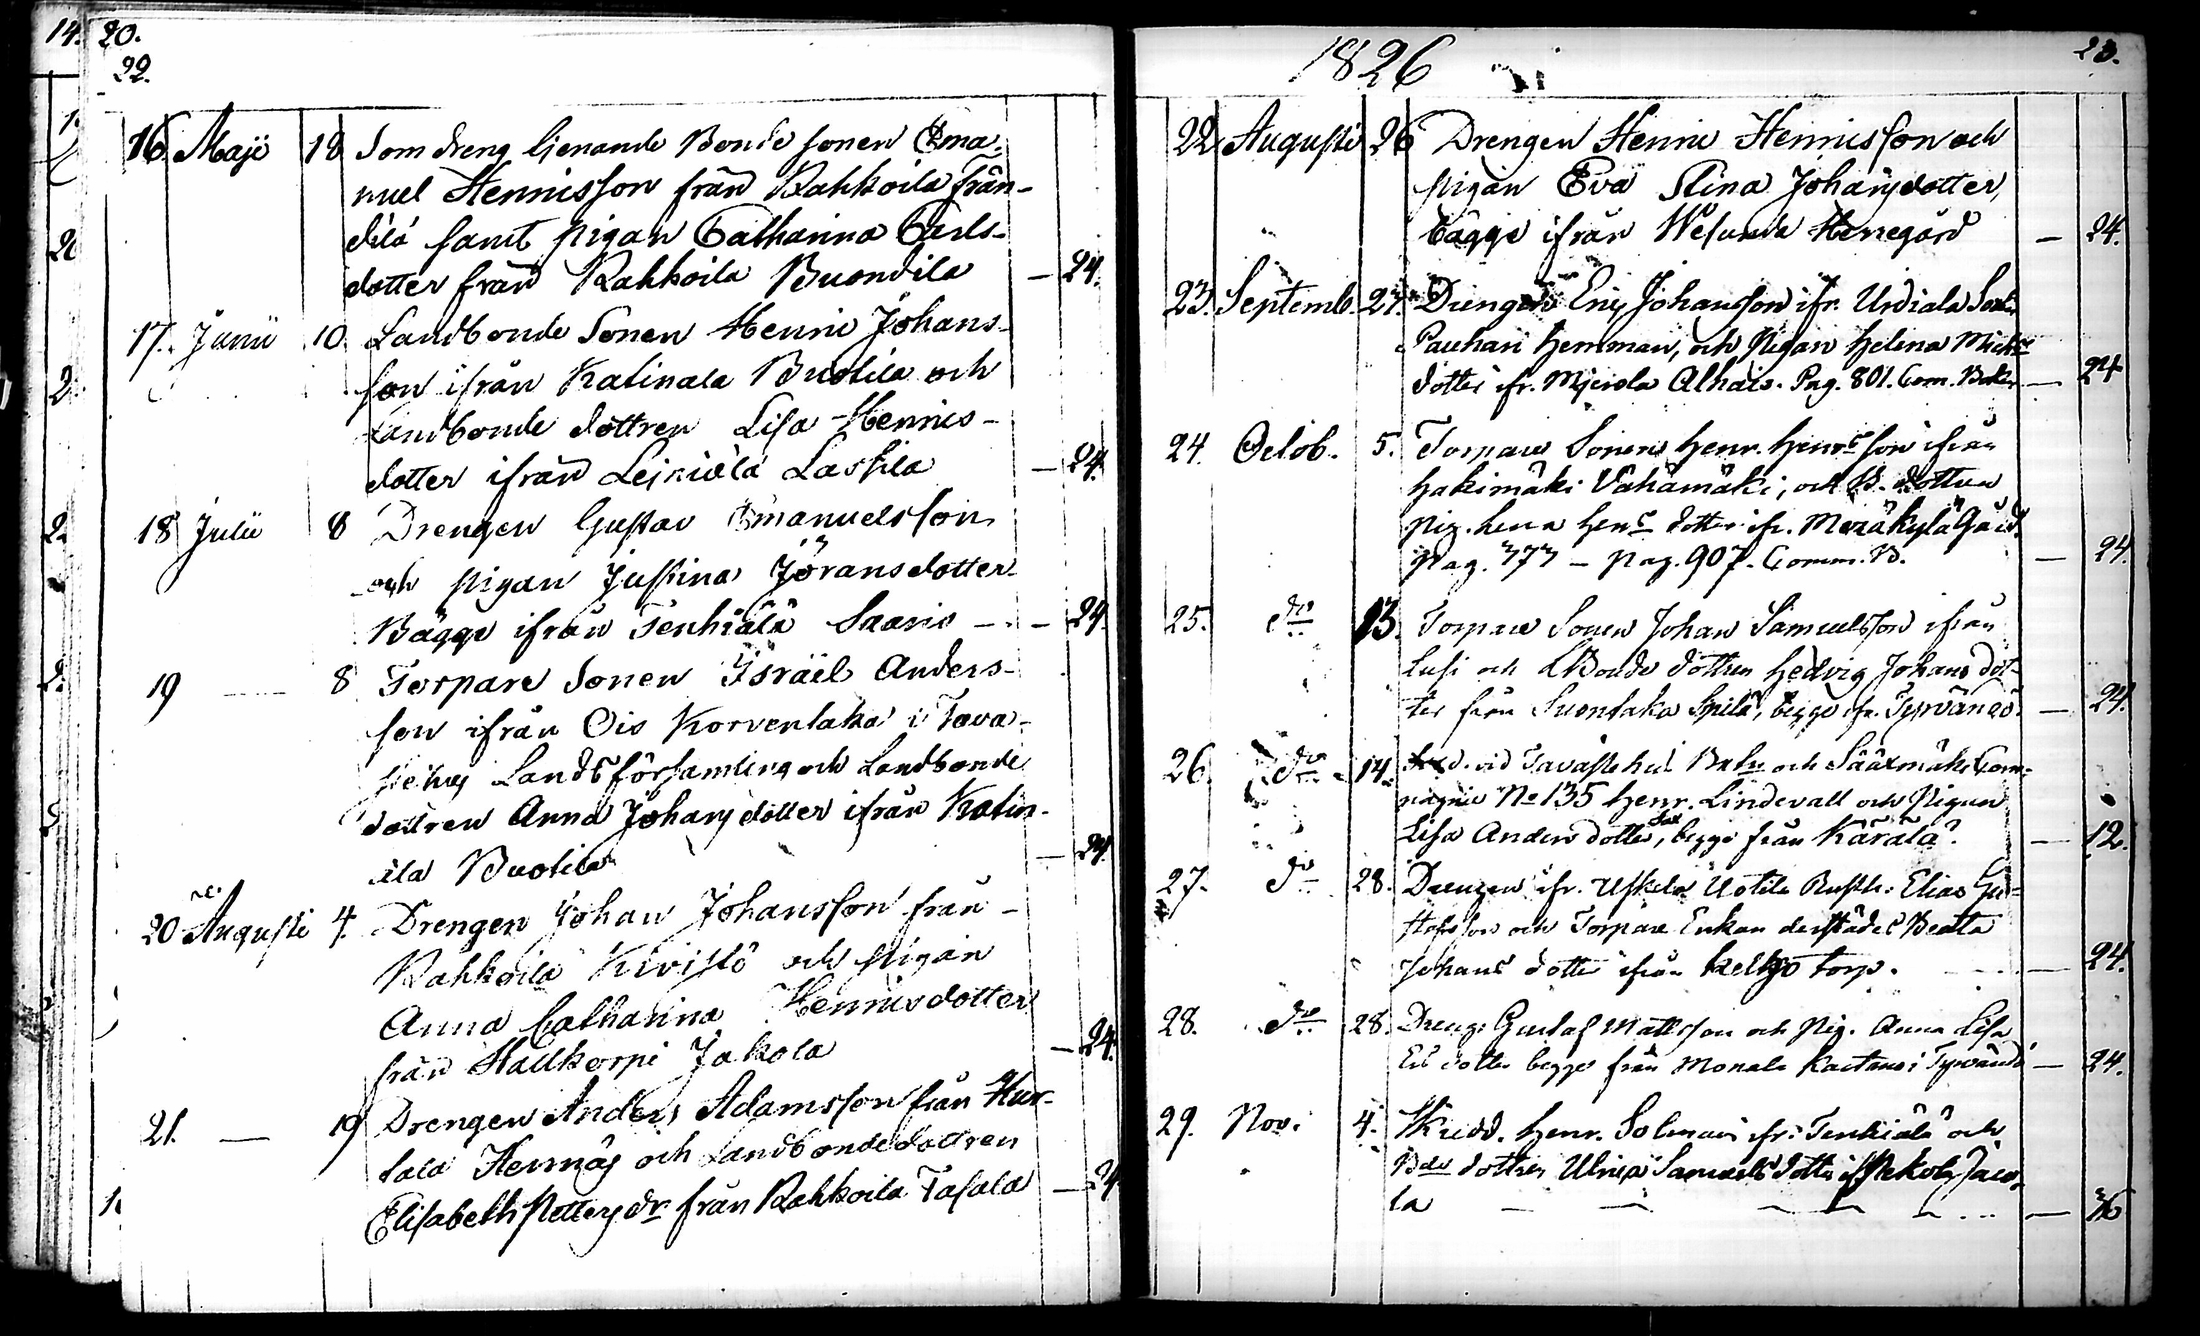 14. 20.
22.
16. Maji 18 Som dreng tjenande Bonde sonen Ema-
nuel Henricsson från Rahkoila Frän-
dilä samt pigan Catharina Carls-
dotter från Rahkoila Buondila — 24.
17. Junii 10. Landbonde Sonen Henric Johans-
son ifrån Katinala Buotila och
Landbonde dottren Lisa Henrics-
dotter ifrån Lejniälä Laskila — 24.
18 Julii 8 Drengen Gustav Emanuelsson
och pigan Justina Jöransdotter
Bägge ifrån Tenhiälä Saaris — 24.
19 — 8 Torpare Sonen Isräel Anders-
son ifrån Ois Korvenlaka i Tava-
stehus Landsförsamling och Landbonde
dottren Anna Johansdotter ifrån Katin-
ala Buotila — 24.
20 Augusti 4. Drengen Johan Johansson från
Rahkoila Kivistö och pigan
Anna Catharina Henricsdotter
från Hallkorpi Jakola — 24.
21. — 19 Drengen Anders Adamsson från Hur-
tala Hermas och Landbondedottren
Elisabeth Pettersdr från Rahkoila Tafala — 24
1826
23.
22 Augusti 26 Drengen Henric Henricsson och
pigan Eva Stina Johansdotter,
bägge ifrån Wesunda Herregård — 24.
23. Septemb. 27. Drengen Eric Johansson ifr. Urdiala
Pauhari hemman, och Pigan Helena Michs
dotter ifr. Mjerola Alhais. Pag. 801. Com. Boken — 24
24. Octob. 5. Torpare Sonen Henr. Henrsson ifrån
Hakimäki Vähämäki, och B. dottren
Pig. Lena Henrs dotter ifr. Meräkylä Gård.
Pag. 377 — pag. 907. Comm. B. — 24.
25. do 13. Torpare Sonen Johan Samuelsson ifrån
Lusi och LBonde dottren Hedvig Johans dot-
ter från Suontaka Spilä, begge ifr. Tyrvändö. — 24.
26. do 14. vid Tavastehus Batn och Sääxmäki Com-
pagnie No 135 Henr. Lindevall och Pigan
Lisa Anders dotter, begge från Kärälä. — 12.
27. do 28. Drengen ifr. Uskela Uotila Rusth. Elias Gu-
stafsson och Torpare Enkan derstädes Beata
Johans dotter ifrån Kelho torp. — 24.
28. do 28. Dreng. Gustaf Mattsson och Pig. Anna Lisa
Ers dotter begge från Monala Kaetano i Tyrvändö — 24.
29. Nov. 4. Skredd. Henr. Solman ifr. Tenhiälä och
Bde dottren Ulrica Samuels dotter if. Pekola Jaco-
la — 36